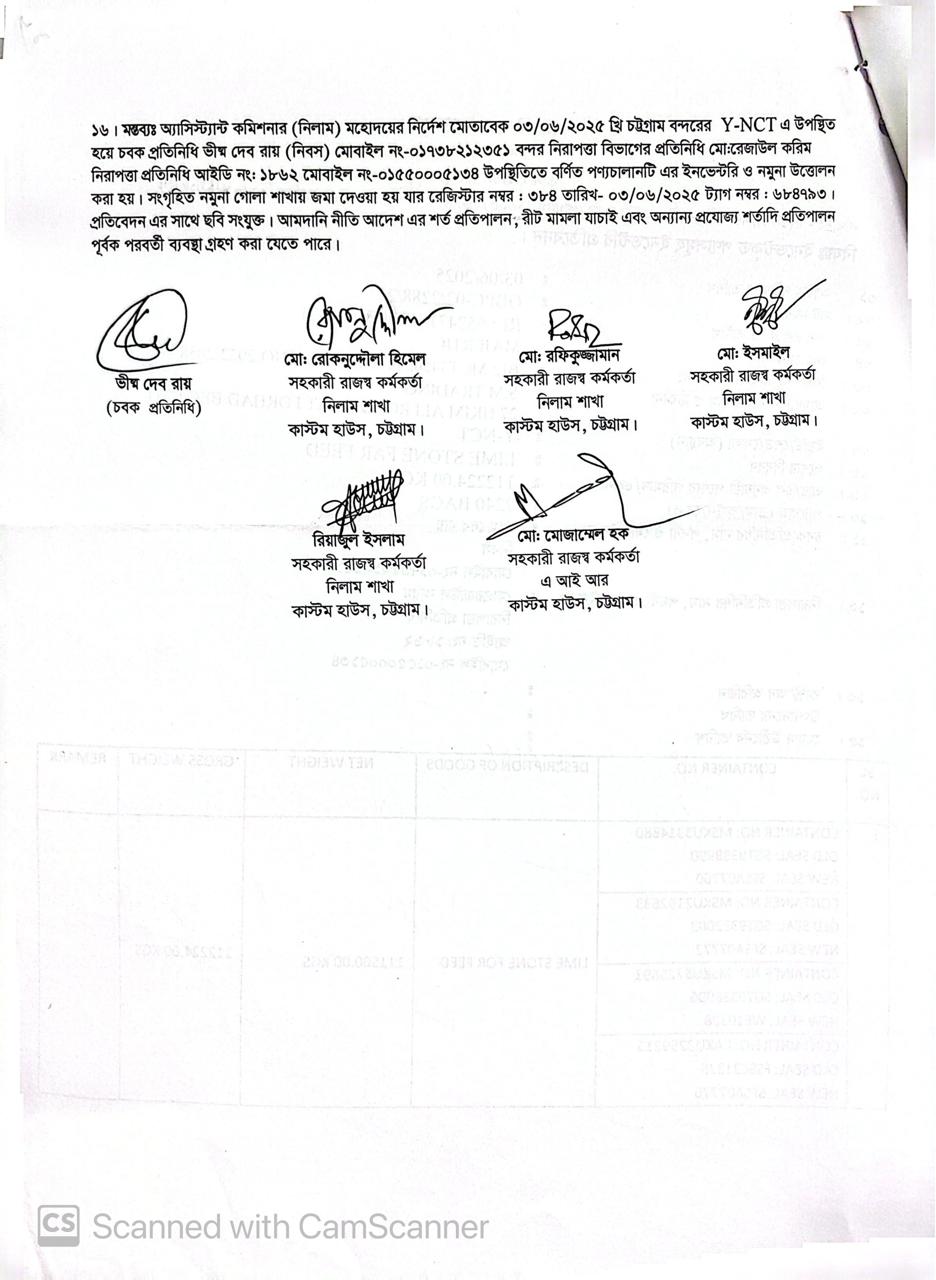 ১৬। মন্তব্যঃ অ্যাসিস্ট্যান্ট কমিশনার (নিলাম) মহোদয়ের নির্দেশ মোতাবেক ০৩/০৬/২০২৫ খ্রি চট্টগ্রাম বন্দরের Y-NCT এ উপস্থিত
হয়ে চবক প্রতিনিধি ভীষ্ম দেব রায় (নিবস) মোবাইল নং-০১৭৩৮২১২৩৫১ বন্দর নিরাপত্তা বিভাগের প্রতিনিধি মো:রেজাউল করিম
নিরাপত্তা প্রতিনিধি আইডি নং: ১৮৬২ মোবাইল নং-০১৫৫০০০৫১৩৪ উপস্থিতিতে বর্ণিত পণ্যচালানটি এর ইনভেন্টরি ও নমুনা উত্তোলন
করা হয়। সংগৃহিত নমুনা গোলা শাখায় জমা দেওয়া হয় যার রেজিস্টার নম্বর : ৩৮৪ তারিখ- ০৩/০৬/২০২৫ ট্যাগ নম্বর : ৬৮৪৭৯৩।
প্রতিবেদন এর সাথে ছবি সংযুক্ত। আমদানি নীতি আদেশ এর শর্ত প্রতিপালন, রীট মামলা যাচাই এবং অন্যান্য প্রযোজ্য শর্তাদি প্রতিপালন
পূর্বক পরবর্তী ব্যবস্থা গ্রহণ করা যেতে পারে।
ভীষ্ম দেব রায়
(চবক প্রতিনিধি)
মো: রোকনুদ্দৌলা হিমেল
সহকারী রাজস্ব কর্মকর্তা
নিলাম শাখা
কাস্টম হাউস, চট্টগ্রাম।
মো: রফিকুজ্জামান
সহকারী রাজস্ব কর্মকর্তা
নিলাম শাখা
কাস্টম হাউস, চট্টগ্রাম।
মো: ইসমাইল
সহকারী রাজস্ব কর্মকর্তা
নিলাম শাখা
কাস্টম হাউস, চট্টগ্রাম।
রিয়াজুল ইসলাম
সহকারী রাজস্ব কর্মকর্তা
নিলাম শাখা
কাস্টম হাউস, চট্টগ্রাম।
মো: মোজাম্মেল হক
সহকারী রাজস্ব কর্মকর্তা
এ আই আর
কাস্টম হাউস, চট্টগ্রাম।
CS Scanned with CamScanner